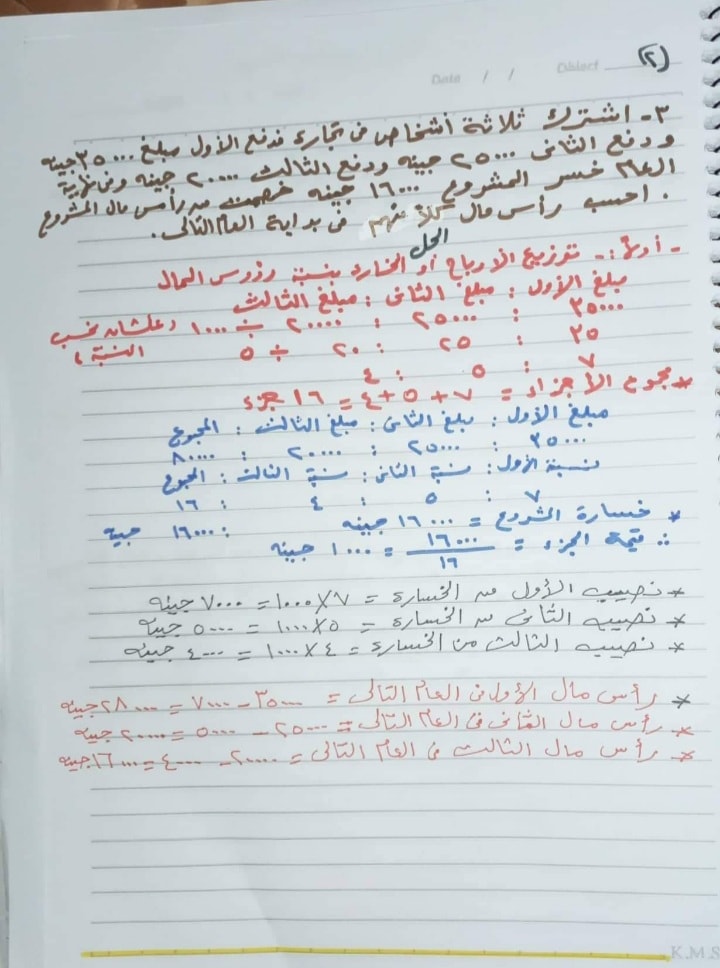 (٢)
Date / / Oblect
٣- اشترك ثلاثة أشخاص فى تجارة فدفع الأول مبلغ ٣٥٠٠٠ جنيه
ودفع الثانى ٢٥٠٠٠ جنيه ودفع الثالث ٢٠٠٠٠ جنيه وفى نهاية
العام خسر المشروع ١٦٠٠٠ جنيه خصمت من رأس مال المشروع
. احسب رأس مال كلا منهم فى بداية العام التالى.
الحل
- أولاً :- توزيع الأرباح أو الخسارة بنسبة رؤوس المال
مبلغ الأول : مبلغ الثانى : مبلغ الثالث
٣٥٠٠٠ : ٢٥٠٠٠ : ٢٠٠٠٠ ÷ ١٠٠٠ (علشان نحسب
٣٥ : ٢٥ : ٢٠ ÷ ٥ النسبة)
٧ : ٥ : ٤
* مجموع الأجزاء = ٧ + ٥ + ٤ = ١٦ جزء
مبلغ الأول : مبلغ الثانى : مبلغ الثالث : المجموع
٣٥٠٠٠ : ٢٥٠٠٠ : ٢٠٠٠٠ : ٨٠٠٠٠
نسبة الأول : نسبة الثانى : نسبة الثالث : المجموع
٧ : ٥ : ٤ : ١٦
* خسارة المشروع = ١٦٠٠٠ جنيه : ١٦٠٠٠ جنيه
∴ قيمة الجزء = ١٦٠٠٠ / ١٦ = ١٠٠٠ جنيه
* نصيب الأول من الخسارة = ٧ × ١٠٠٠ = ٧٠٠٠ جنيه
* نصيب الثانى من الخسارة = ٥ × ١٠٠٠ = ٥٠٠٠ جنيه
* نصيب الثالث من الخسارة = ٤ × ١٠٠٠ = ٤٠٠٠ جنيه
* رأس مال الأول فى العام التالى = ٣٥٠٠٠ - ٧٠٠٠ = ٢٨٠٠٠ جنيه
* رأس مال الثانى فى العام التالى = ٢٥٠٠٠ - ٥٠٠٠ = ٢٠٠٠٠ جنيه
* رأس مال الثالث فى العام التالى = ٢٠٠٠٠ - ٤٠٠٠ = ١٦٠٠٠ جنيه
K.M.S